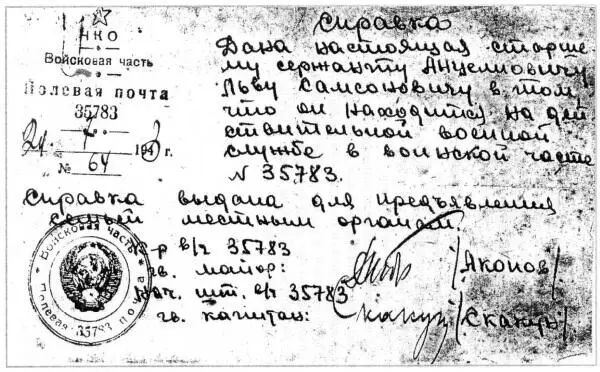 НКО
Войсковая часть
Полевая почта
35783
194 г.
№ 64
Справка
Дана настоящая старше
му сержанту Анцелиовичу
Льву Самсоновичу в том,
что он находится на дей
ствительной военной
службе в воинской части
N 35783.
Справка выдана для предъявления
семьей местным органам.
К-р в/ч 35783
гв. майор: /Яконов/
Нач. шт. в/ч 35783
гв. капитан:
Войсковая часть
Полевая почта
35783